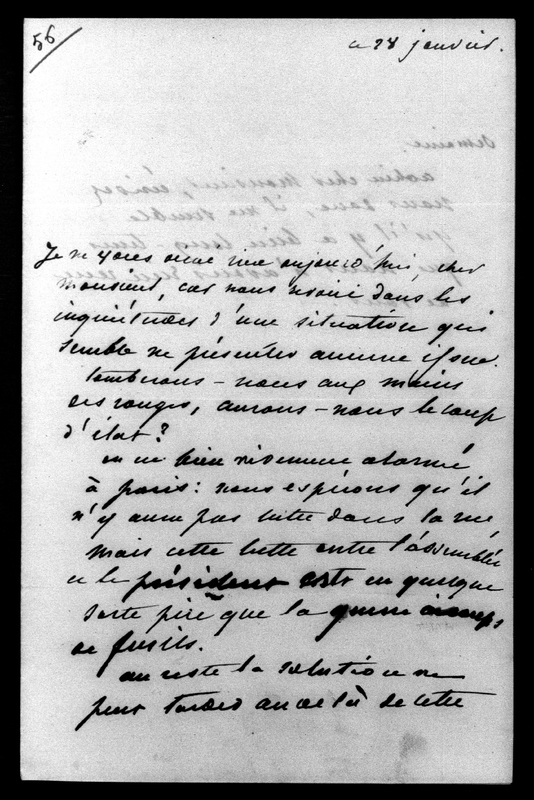 56
ce 28 janvier.
Je ne vous envoie rien aujourd'hui, cher
monsieur, car nous vivons dans les
inquiétudes d'une situation qui
semble ne présenter aucune issue.
tomberons-nous aux mains
des rouges, aurons-nous le coup
d'état?
on est bien vivement alarmé
à paris: nous espérons qu'il
n'y aura pas lutte dans la rue
mais cette lutte entre l'assemblée
et le président est en quelque
sorte pire que la guerre à coups
de fusils.
au reste la solution ne
peut tarder au delà de cette